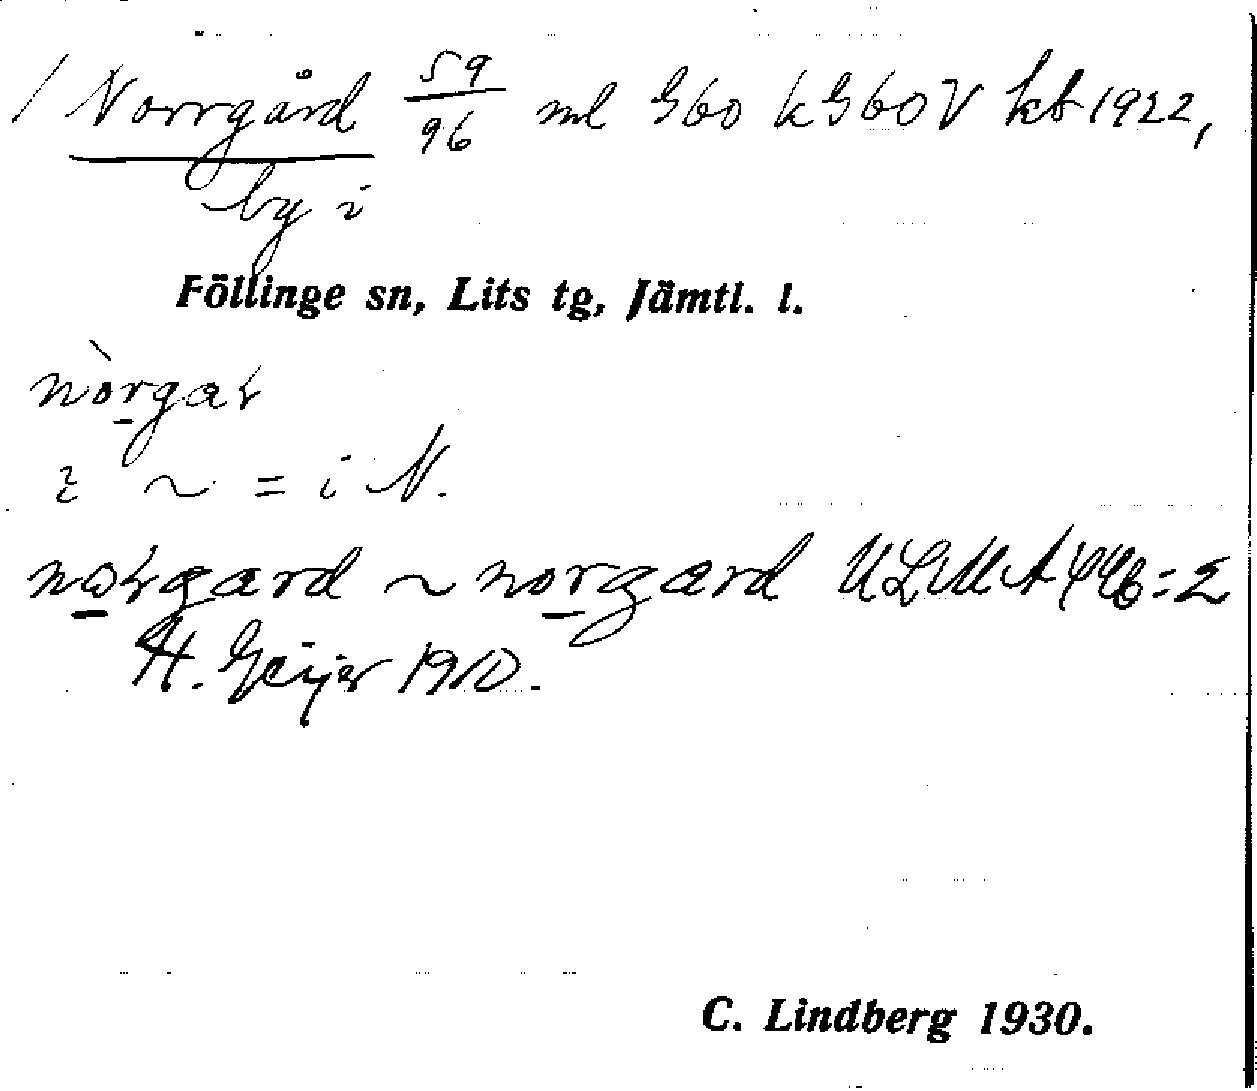 / Norrgård 59/96 ml G60 kG60V kb 1922,
by i
Föllinge sn, Lits tg, Jämtl. l.
nòrgar
i ~ = i N.
norgard ~ norgard ULMA
H. Geijer 1910.
C. Lindberg 1930.